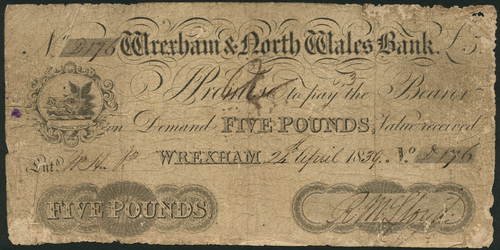 No. D176 Wrexham & North Wales Bank. £5
I Promise to pay the Bearer
on Demand FIVE POUNDS, Value received
Entd. WREXHAM, 24th April 1839. No. D176
FIVE POUNDS